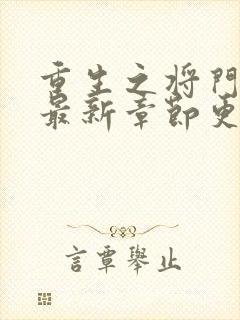 重生之将门
最新章节更
言覃舉止